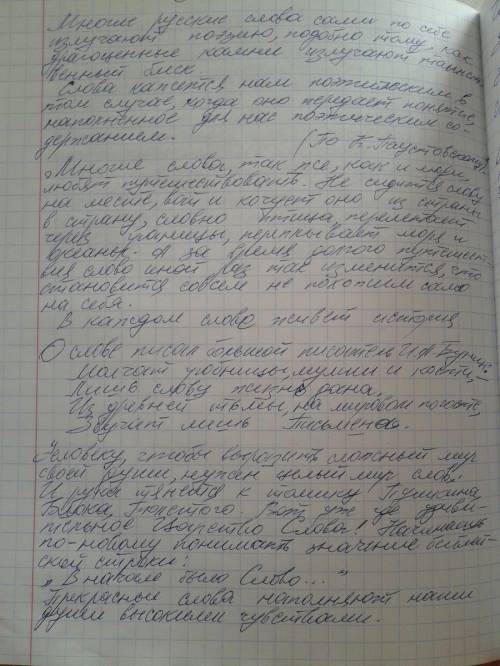 Многие русские слова сами по себе
излучают поэзию, подобно тому, как
драгоценные камни излучают таинст-
венный блеск
Слова кажется нам поэтическим в
том случае, когда оно передает понятие,
наполненное для нас поэтическим со-
держанием.
(По К. Паустовскому)
„Многие слова, так же, как и люди,
любят путешествовать. Не сидится слову
на месте, вот и кочует оно из страны
в страну, словно птица, перелетает
через границы, переплывает моря и
океаны. А за время долгого путешест-
вия слово иной раз так изменится, что
становится совсем не похожим само
на себя.
В каждом слове живет история
О слове писал большой писатель И.А. Бунин:
Молчат гробницы, мумии и кости, –
Лишь слову жизнь дана,
Из древней тьмы, на мировом погосте,
Звучат лишь Письмена.
Человеку, чтобы выразить сложный мир
своей души, нужен целый мир слов.
И рука тянется к томику Пушкина,
Блока, Толстого. Вот уже где удиви-
тельное Царство Слова! Начинаешь
по-новому понимать значение библей-
ской строки:
„В начале было Слово..."
Прекрасные слова наполняют наши
души высокими чувствами.